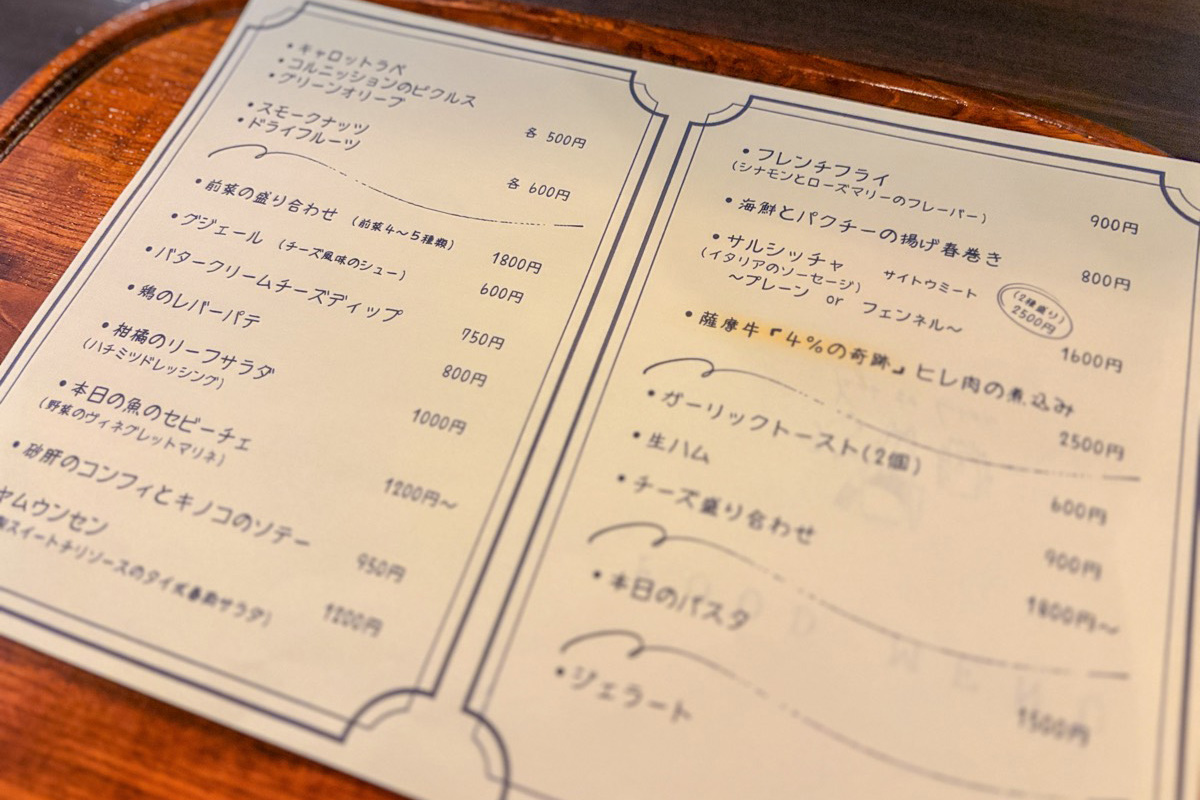 ・キャロットラペ
・コルニッションのピクルス
・グリーンオリーブ
各 500円
・スモークナッツ
・ドライフルーツ
各 600円
・前菜の盛り合わせ (前菜4〜5種類)
1800円
・グジェール (チーズ風味のシュー)
600円
・バタークリームチーズディップ
750円
・鶏のレバーパテ
800円
・柑橘のリーフサラダ
(ハチミツドレッシング)
1000円
・本日の魚のセビーチェ
(野菜のヴィネグレットマリネ)
1200円〜
・砂肝のコンフィとキノコのソテー
950円
ヤムウンセン
製スイートチリソースのタイ式春雨サラダ)
1200円
・フレンチフライ
(シナモンとローズマリーのフレーバー)
900円
・海鮮とパクチーの揚げ春巻き
800円
・サルシッチャ サイトウミート
(イタリアのソーセージ)
〜プレーン or フェンネル〜
(2種盛り)
2500円
1600円
・薩摩牛『4%の奇跡』ヒレ肉の煮込み
2500円
・ガーリックトースト(2個)
600円
・生ハム
900円
・チーズ盛り合わせ
1800円〜
・本日のパスタ
1500円
・ジェラート